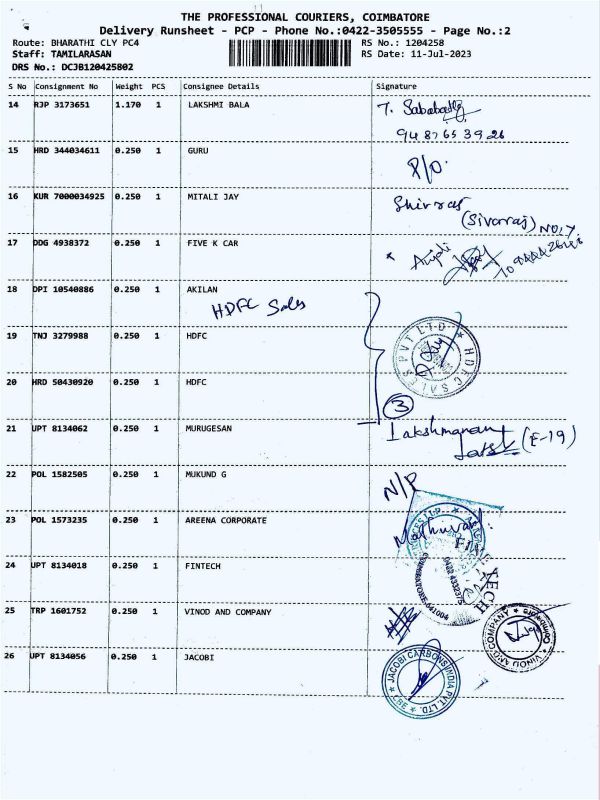 THE PROFESSIONAL COURIERS, COIMBATORE
Delivery Runsheet - PCP - Phone No.:0422-3505555 - Page No.:2
Route: BHARATHI CLY PC4 RS No.: 1204258
Staff: TAMILARASAN RS Date: 11-Jul-2023
DRS No.: DCJB120425802
S No Consignment No Weight PCS Consignee Details Signature
14 RJP 3173651 1.170 1 LAKSHMI BALA
15 HRD 344034611 0.250 1 GURU P/O.
16 KUR 7000034925 0.250 1 MITALI JAY
(Sivarraj) NO,7
17 DDG 4938372 0.250 1 FIVE K CAR
18 DPI 10540886 0.250 1 AKILAN
HDFC Sales
19 TNJ 3279988 0.250 1 HDFC
HDFC SALES PVT LTD
20 HRD 50430920 0.250 1 HDFC
3
21 UPT 8134062 0.250 1 MURUGESAN
Lakshmanan
(E-19)
22 POL 1582505 0.250 1 MUKUND G N/P
23 POL 1573235 0.250 1 AREENA CORPORATE
24 UPT 8134018 0.250 1 FINTECH
641004
25 TRP 1601752 0.250 1 VINOD AND COMPANY
VINOD AND COMPANY
26 UPT 8134056 0.250 1 JACOBI
JACOBI CARBONS INDIA PVT. LTD.